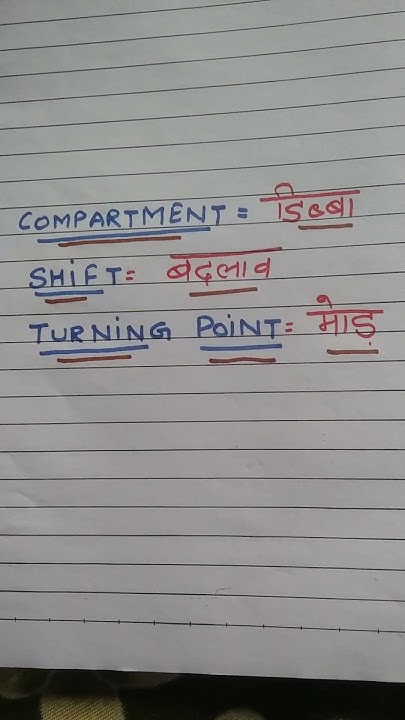 COMPARTMENT = डिब्बा
SHiFT= बदलाव
TURNiNG POiNT= मोड़